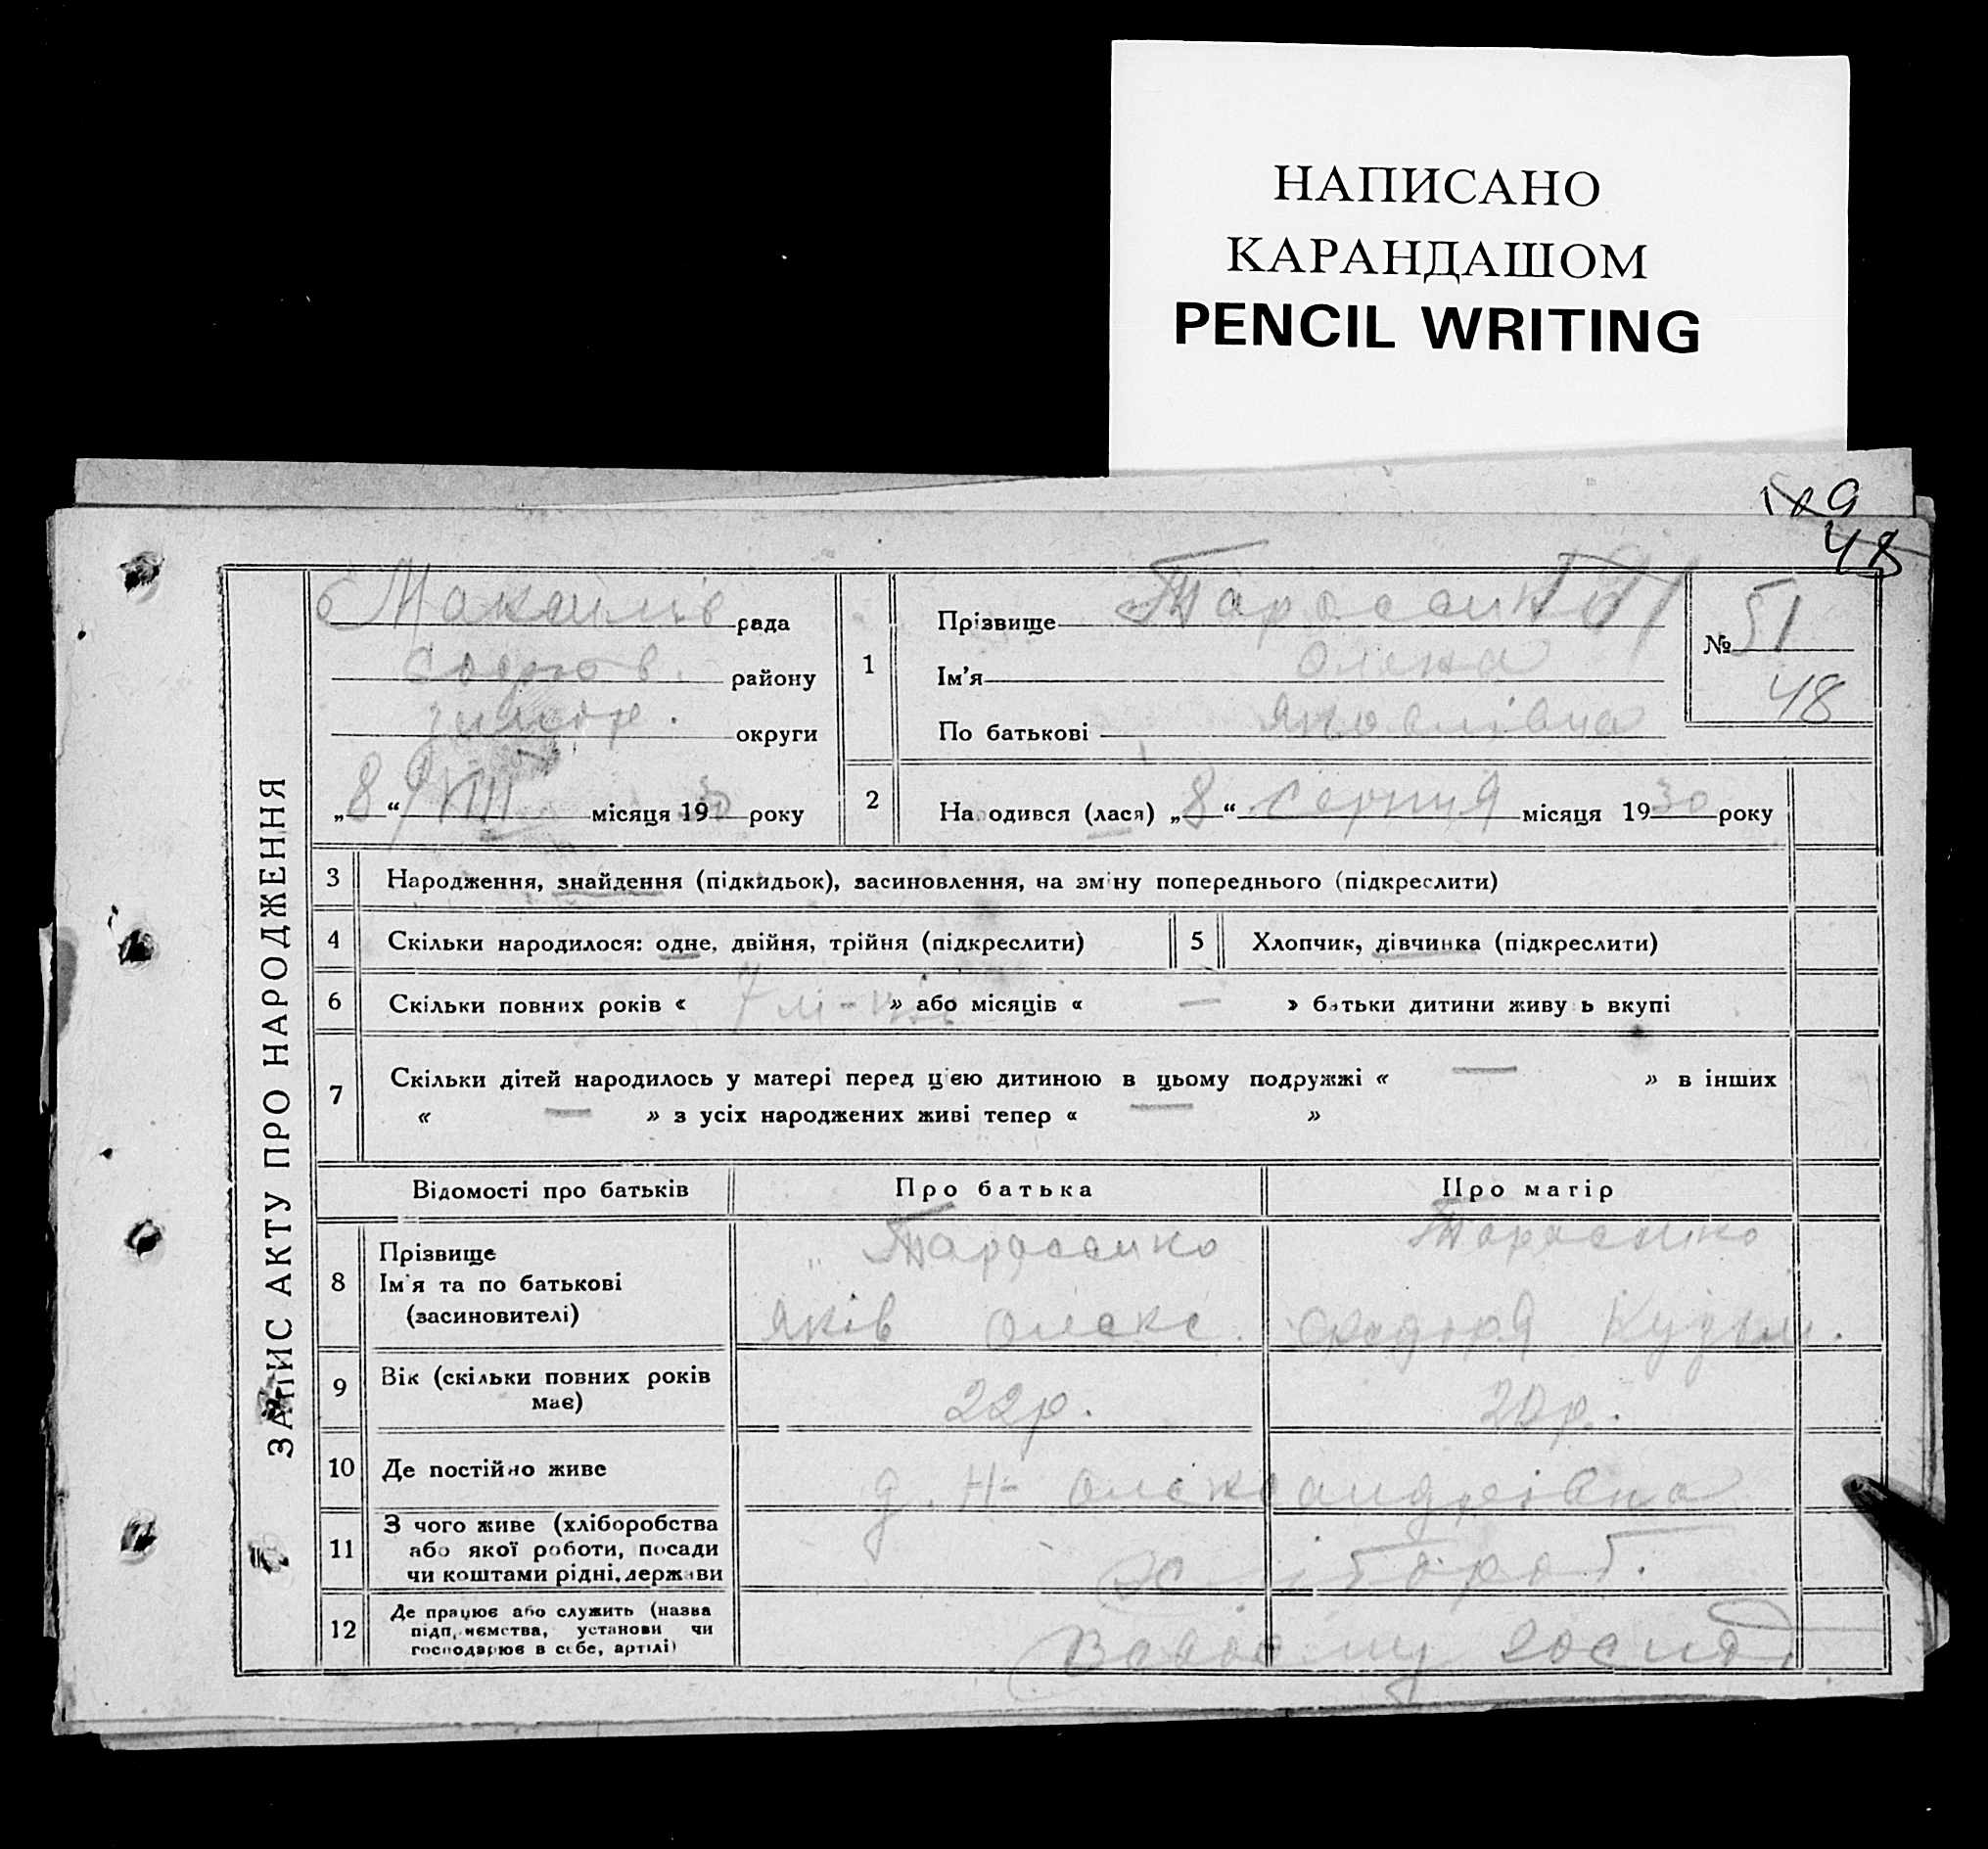 НАПИСАНО
КАРАНДАШОМ
PENCIL WRITING
48
ЗАПИС АКТУ ПРО НАРОДЖЕННЯ
рада
району
округи
„8“ VIII місяця 1930 року
1
Прізвище Тарасенко
Ім'я Олена
По батькові Яковлівна
№ 51
48
2
Народився (лася) „8“ серпня місяця 1930 року
3 Народження, знайдення (підкидьок), засиновлення, на зміну попереднього (підкреслити)
4 Скільки народилося: одне, двійня, трійня (підкреслити) 5 Хлопчик, дівчинка (підкреслити)
6 Скільки повних років « 7 » або місяців « — » батьки дитини живуть вкупі
7 Скільки дітей народилось у матері перед цією дитиною в цьому подружжі « — » в інших
« — » з усіх народжених живі тепер « — »
Відомості про батьків Про батька Про матір
8 Прізвище Тарасенко Тарасенко
Ім'я та по батькові
(засиновителі) Яків Олекс. Кузьм.
9 Вік (скільки повних років
має) 22р. 20р.
10 Де постійно живе д. Н-Олександрівка
11 З чого живе (хліборобства
або якої роботи, посади
чи коштами рідні, держави хлібороб.
12 Де працює або служить (назва
підприємства, установи чи
господарює в себе, артілі) В своєму госпд.